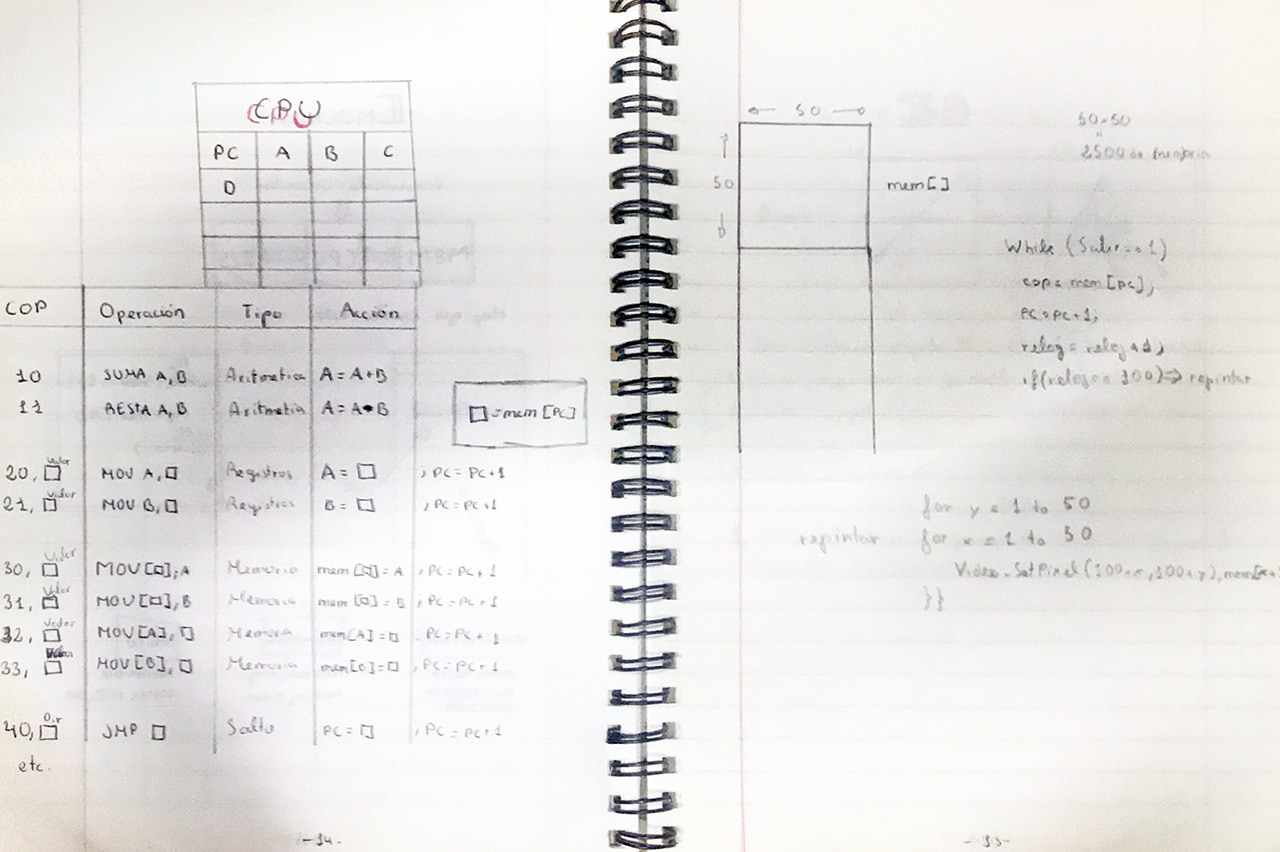 CPU
PC A B C
0
COP Operación Tipo Acción
10 SUMA A,B Aritmetica A = A+B
11 RESTA A,B Aritmetia A = A-B
□ = mem [PC]
20, □ Valor MOV A, □ Registros A = □ ; PC = PC+1
21, □ Valor MOV B, □ Registros B = □ ; PC = PC+1
30, □ Valor MOV [□], A Memoria mem [□] = A ; PC = PC+1
31, □ Valor MOV [□], B Memoria mem [□] = B ; PC = PC+1
32, □ Valor MOV [A], □ Memoria mem [A] = □ ; PC = PC+1
33, □ MOV [B], □ Memoria mem [B] = □ ; PC = PC+1
40, □ Dir JMP □ Salto PC = □ ; PC = PC+1
etc.
- 34 -
50
50
mem[]
50·50
"
2500 memoria
While (Salir == 1)
cop = mem [PC];
PC = PC+1;
reloj = reloj + 1;
if (reloj == 100) => repintar
for y = 1 to 50
repintar for x = 1 to 50
Video.SetPixel (100+x, 100+y), mem[x+
}}
- 35 -